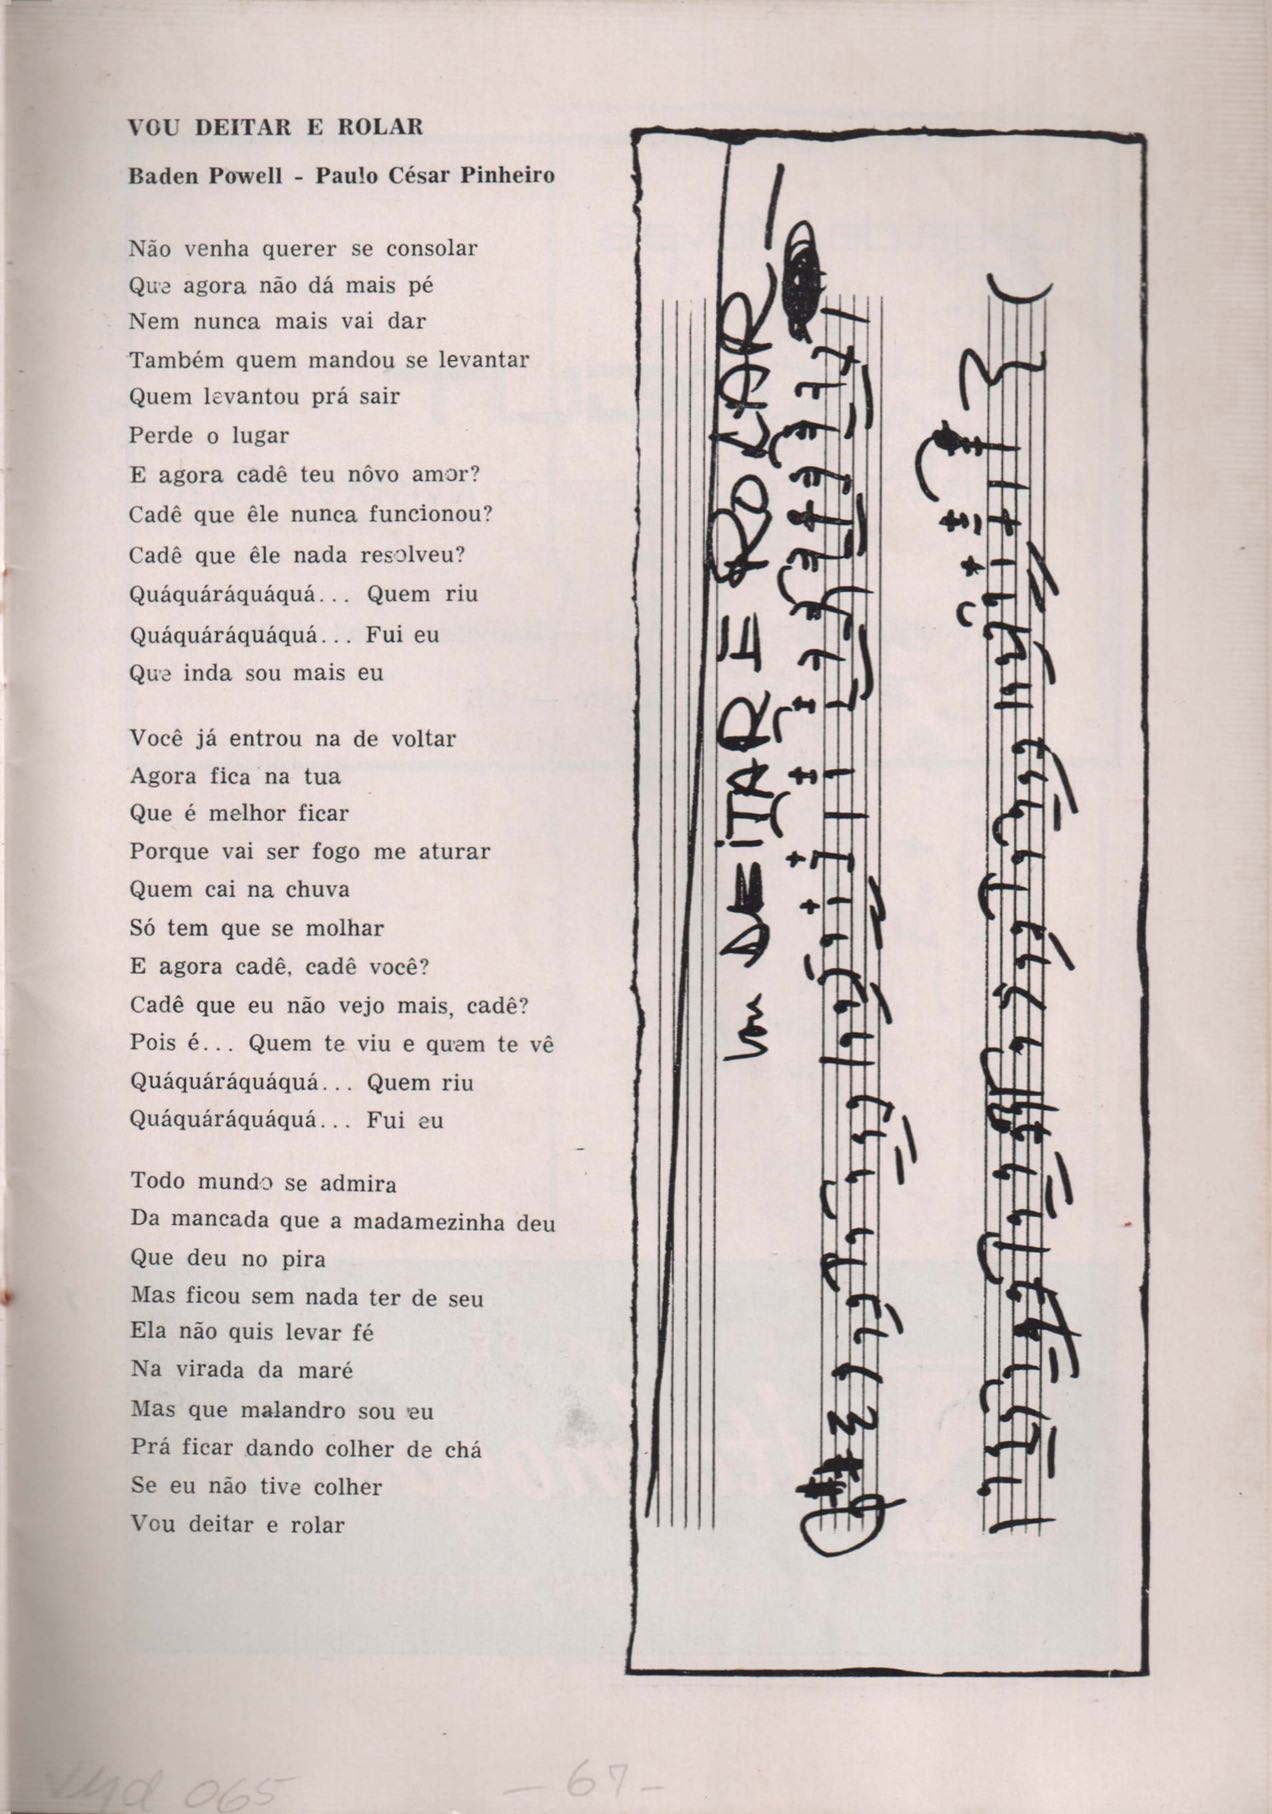 VOU DEITAR E ROLAR
Baden Powell - Paulo César Pinheiro
Não venha querer se consolar
Que agora não dá mais pé
Nem nunca mais vai dar
Também quem mandou se levantar
Quem levantou prá sair
Perde o lugar
E agora cadê teu nôvo amor?
Cadê que êle nunca funcionou?
Cadê que êle nada resolveu?
Quáquáráquáquá... Quem riu
Quáquáráquáquá... Fui eu
Que inda sou mais eu
Você já entrou na de voltar
Agora fica na tua
Que é melhor ficar
Porque vai ser fogo me aturar
Quem cai na chuva
Só tem que se molhar
E agora cadê, cadê você?
Cadê que eu não vejo mais, cadê?
Pois é... Quem te viu e quem te vê
Quáquáráquáquá... Quem riu
Quáquáráquáquá... Fui eu
Todo mundo se admira
Da mancada que a madamezinha deu
Que deu no pira
Mas ficou sem nada ter de seu
Ela não quis levar fé
Na virada da maré
Mas que malandro sou eu
Prá ficar dando colher de chá
Se eu não tive colher
Vou deitar e rolar
VOU DEITAR E ROLAR
065
- 67 -